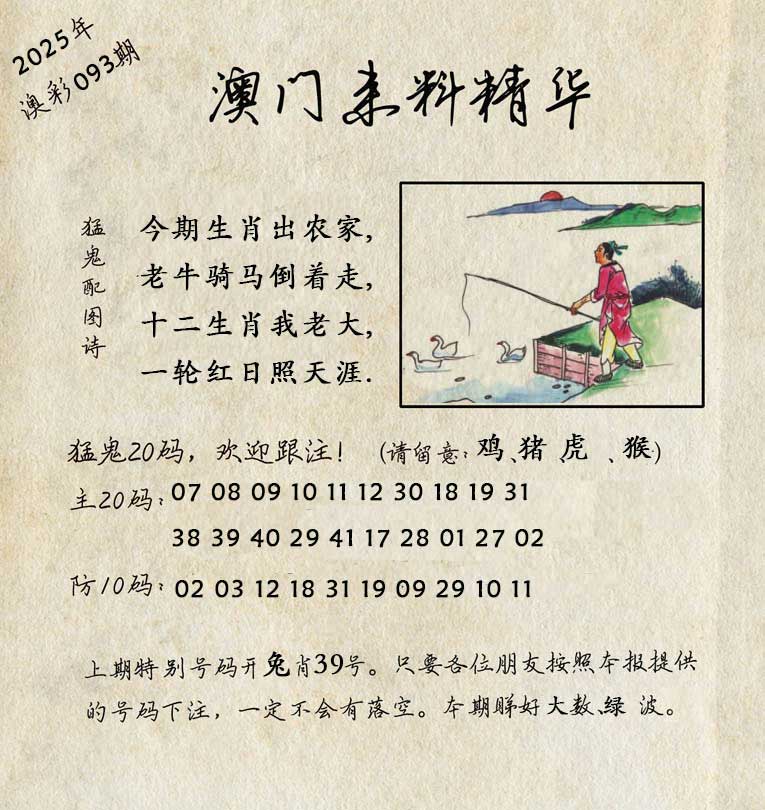 2025年
澳彩093期
澳门来料精华
猛鬼配图诗
今期生肖出农家,
老牛骑马倒着走,
十二生肖我老大,
一轮红日照天涯.
猛鬼20码，欢迎跟注！（请留意：鸡、猪、虎、猴）
主20码：07 08 09 10 11 12 30 18 19 31
38 39 40 29 41 17 28 01 27 02
防10码：02 03 12 18 31 19 09 29 10 11
上期特别号码开兔肖39号。只要各位朋友按照本报提供
的号码下注，一定不会有落空。本期睇好大数、绿波。